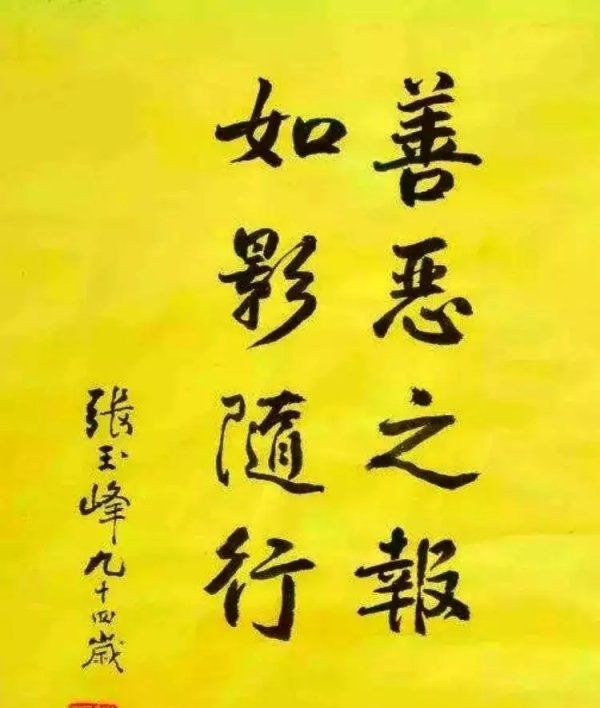 善惡之報
如影隨行
張玉峰九十四歲